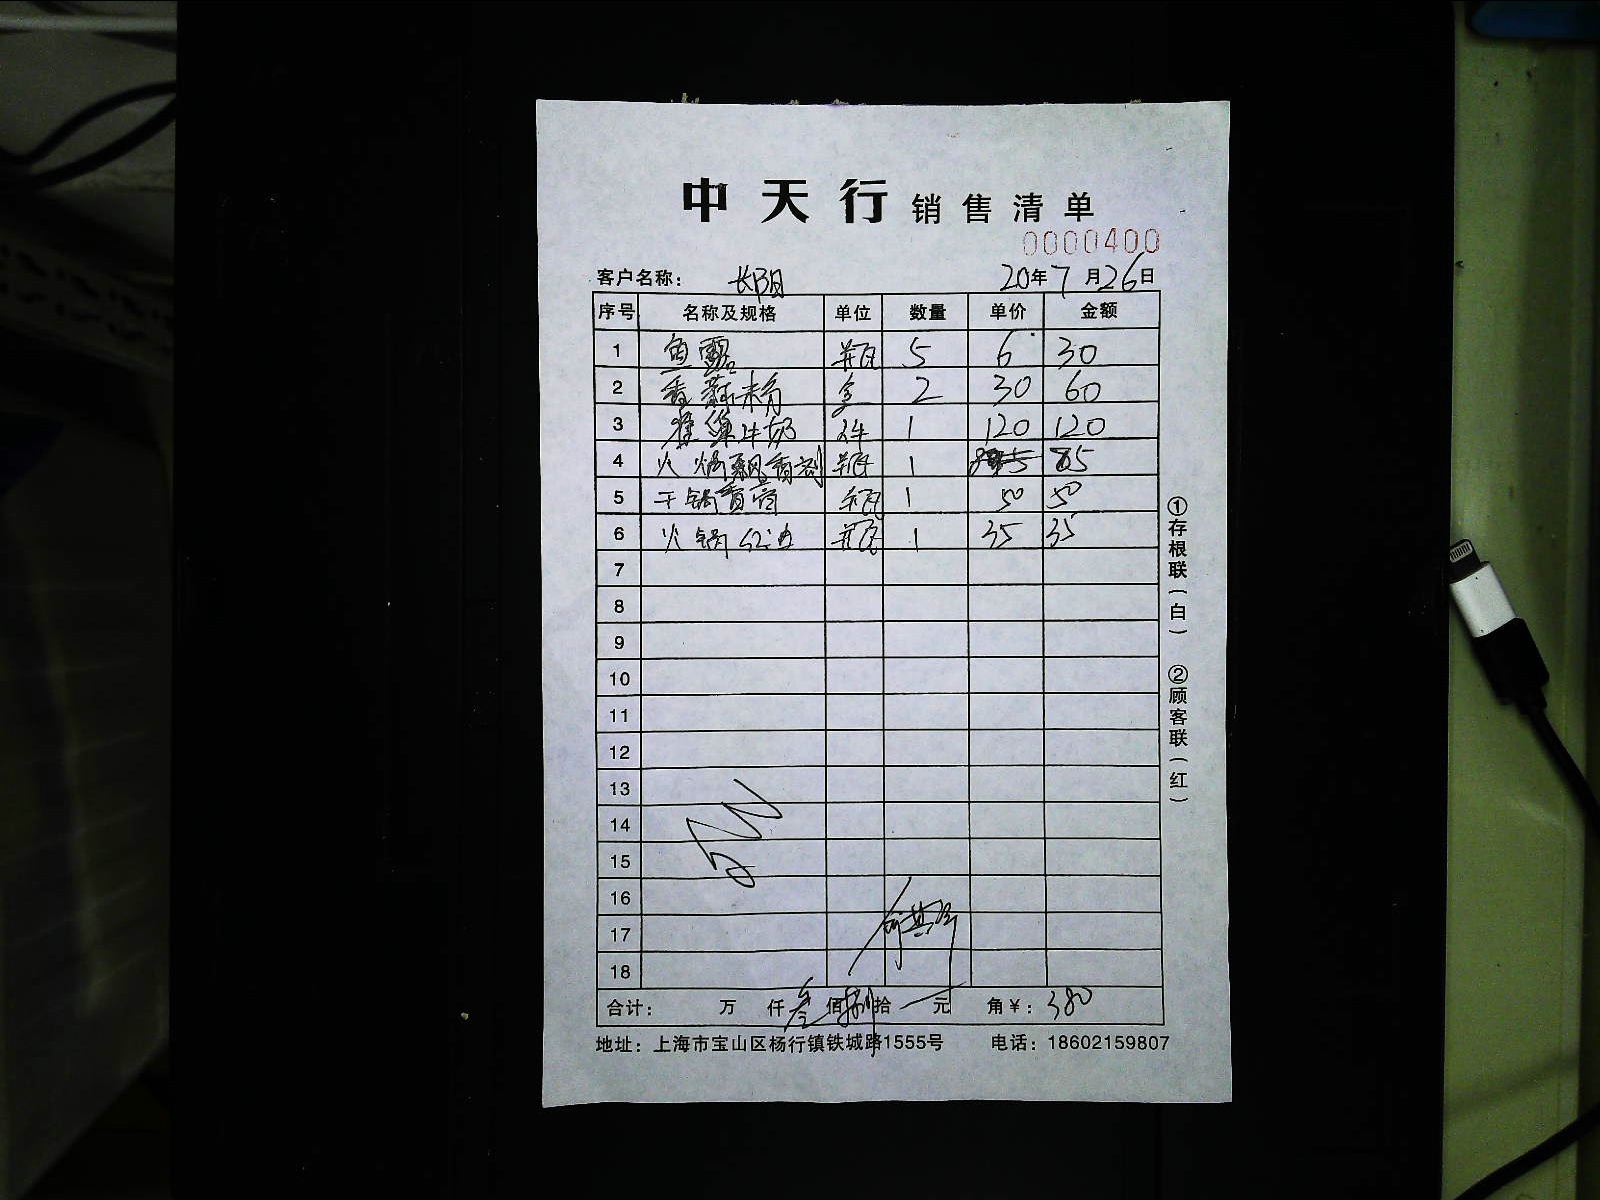 中天行 销售清单
0000400
客户名称： 长阳 20年7月26日
序号 名称及规格 单位 数量 单价 金额
1 鱼露 瓶 5 6 30
2 香蒜精 盒 2 30 60
3 牛奶 件 1 120 120
4 火锅飘香剂 瓶 1 85
5 干锅香膏 瓶 1 50 50
6 火锅红油 瓶 1 35 35
7
8
9
10
11
12
13
14
15
16
17
18
合计： 万 仟 叁佰捌拾 元 角 ¥：380
地址：上海市宝山区杨行镇铁城路1555号 电话：18602159807
①存根联（白） ②顾客联（红）